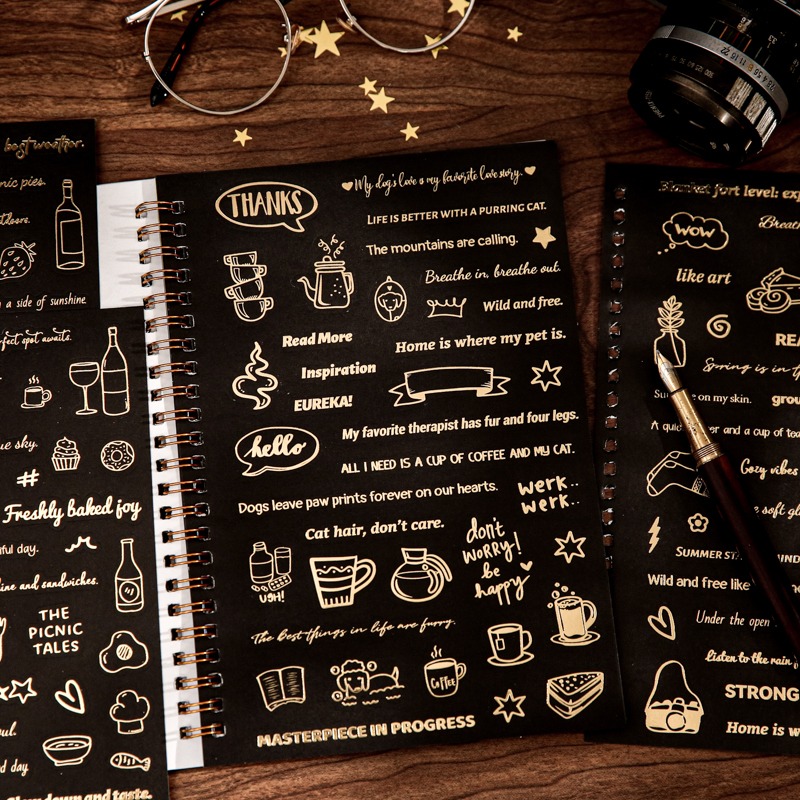 best weather.
nic pies.
tdoors.
a side of sunshine
rfect spot awaits.
ue sky.
#
Freshly baked joy
iful day.
ine and sandwiches.
THE
PICNIC
TALES
ul.
d day.
low down and taste.
THANKS
My dog's love is my favorite love story.
LIFE IS BETTER WITH A PURRING CAT.
The mountains are calling.
Breathe in, breathe out.
Wild and free.
Read More
Home is where my pet is.
Inspiration
EUREKA!
My favorite therapist has fur and four legs.
hello
ALL I NEED IS A CUP OF COFFEE AND MY CAT.
Dogs leave paw prints forever on our hearts.
werk..
werk..
Cat hair, don't care.
don't
worry!
be
happy
UGH!
The best things in life are furry.
COFFEE
MASTERPIECE IN PROGRESS
Blanket fort level: exp
WOW
Breath
like art
REA
Spring is in t
on my skin.
grou
A quie er and a cup of tea
Cozy vibes
e soft glo
SUMMER STA
Wild and free like
Under the open
Listen to the rain
STRONG
Home is w